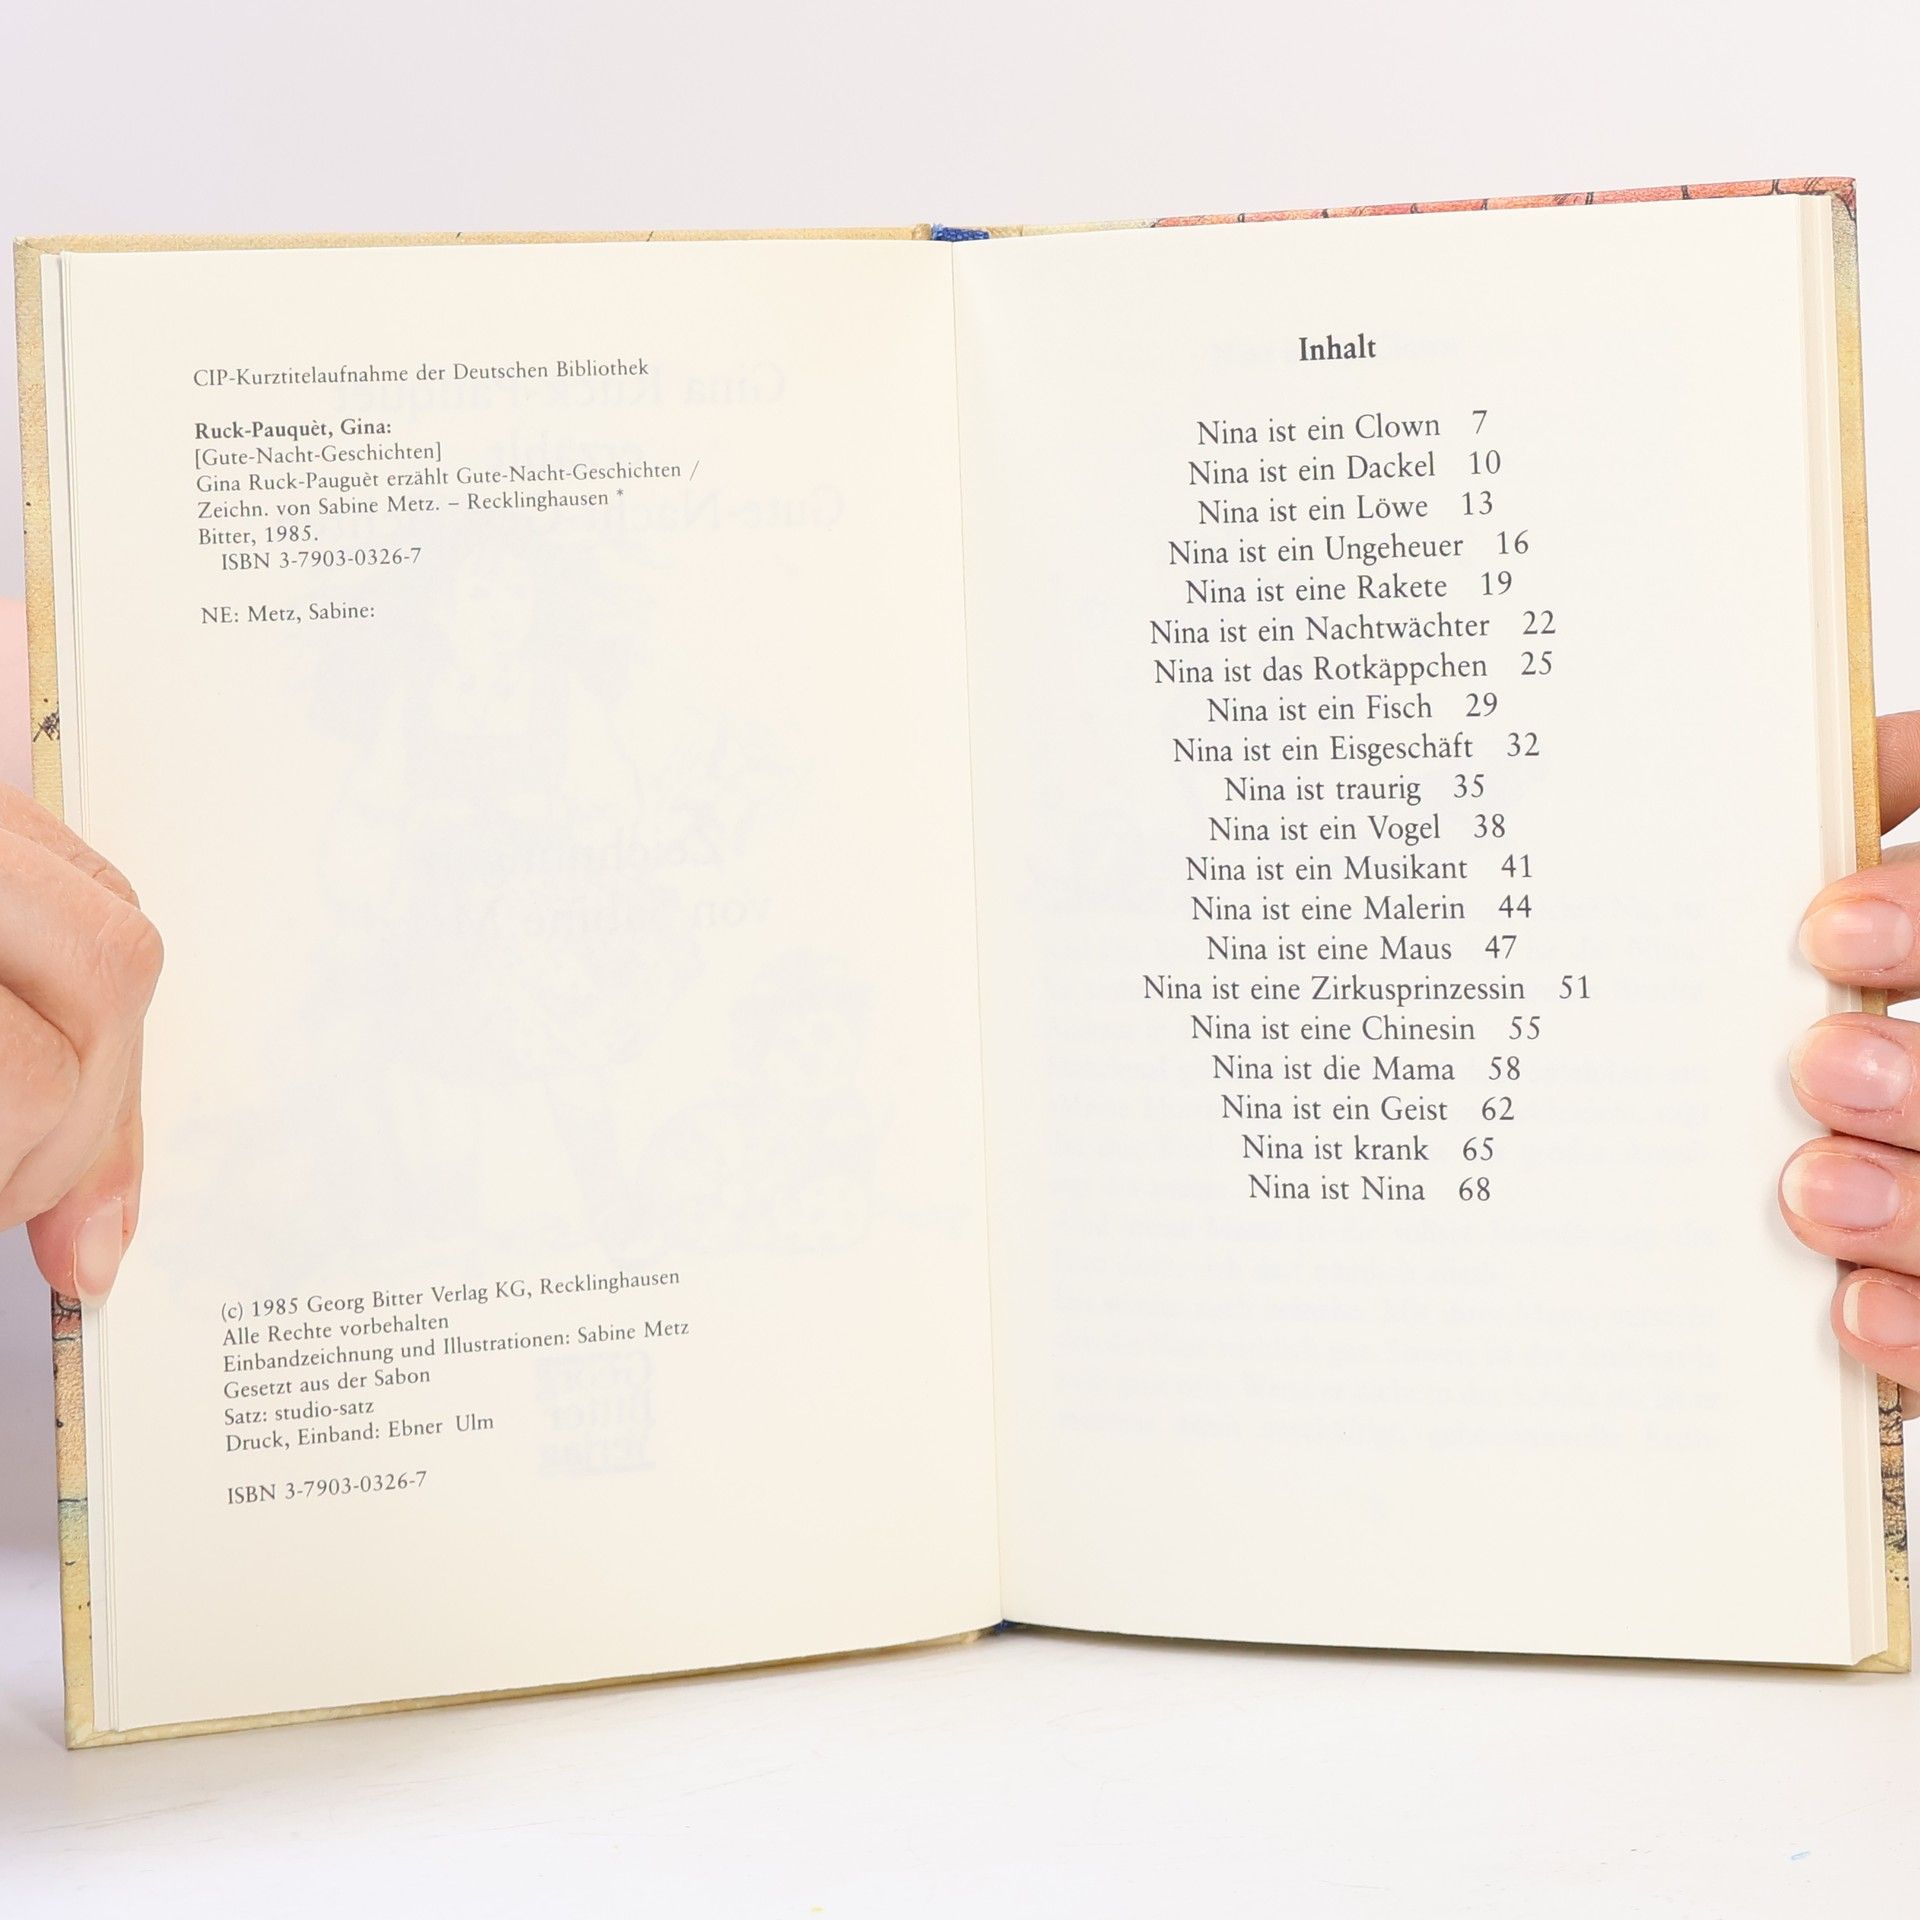 CIP-Kurztitelaufnahme der Deutschen Bibliothek
Ruck-Pauquèt, Gina:
[Gute-Nacht-Geschichten]
Gina Ruck-Pauguèt erzählt Gute-Nacht-Geschichten /
Zeichn. von Sabine Metz. – Recklinghausen *
Bitter, 1985.
ISBN 3-7903-0326-7
NE: Metz, Sabine:
(c) 1985 Georg Bitter Verlag KG, Recklinghausen
Alle Rechte vorbehalten
Einbandzeichnung und Illustrationen: Sabine Metz
Gesetzt aus der Sabon
Satz: studio-satz
Druck, Einband: Ebner Ulm
ISBN 3-7903-0326-7
Inhalt
Nina ist ein Clown 7
Nina ist ein Dackel 10
Nina ist ein Löwe 13
Nina ist ein Ungeheuer 16
Nina ist eine Rakete 19
Nina ist ein Nachtwächter 22
Nina ist das Rotkäppchen 25
Nina ist ein Fisch 29
Nina ist ein Eisgeschäft 32
Nina ist traurig 35
Nina ist ein Vogel 38
Nina ist ein Musikant 41
Nina ist eine Malerin 44
Nina ist eine Maus 47
Nina ist eine Zirkusprinzessin 51
Nina ist eine Chinesin 55
Nina ist die Mama 58
Nina ist ein Geist 62
Nina ist krank 65
Nina ist Nina 68